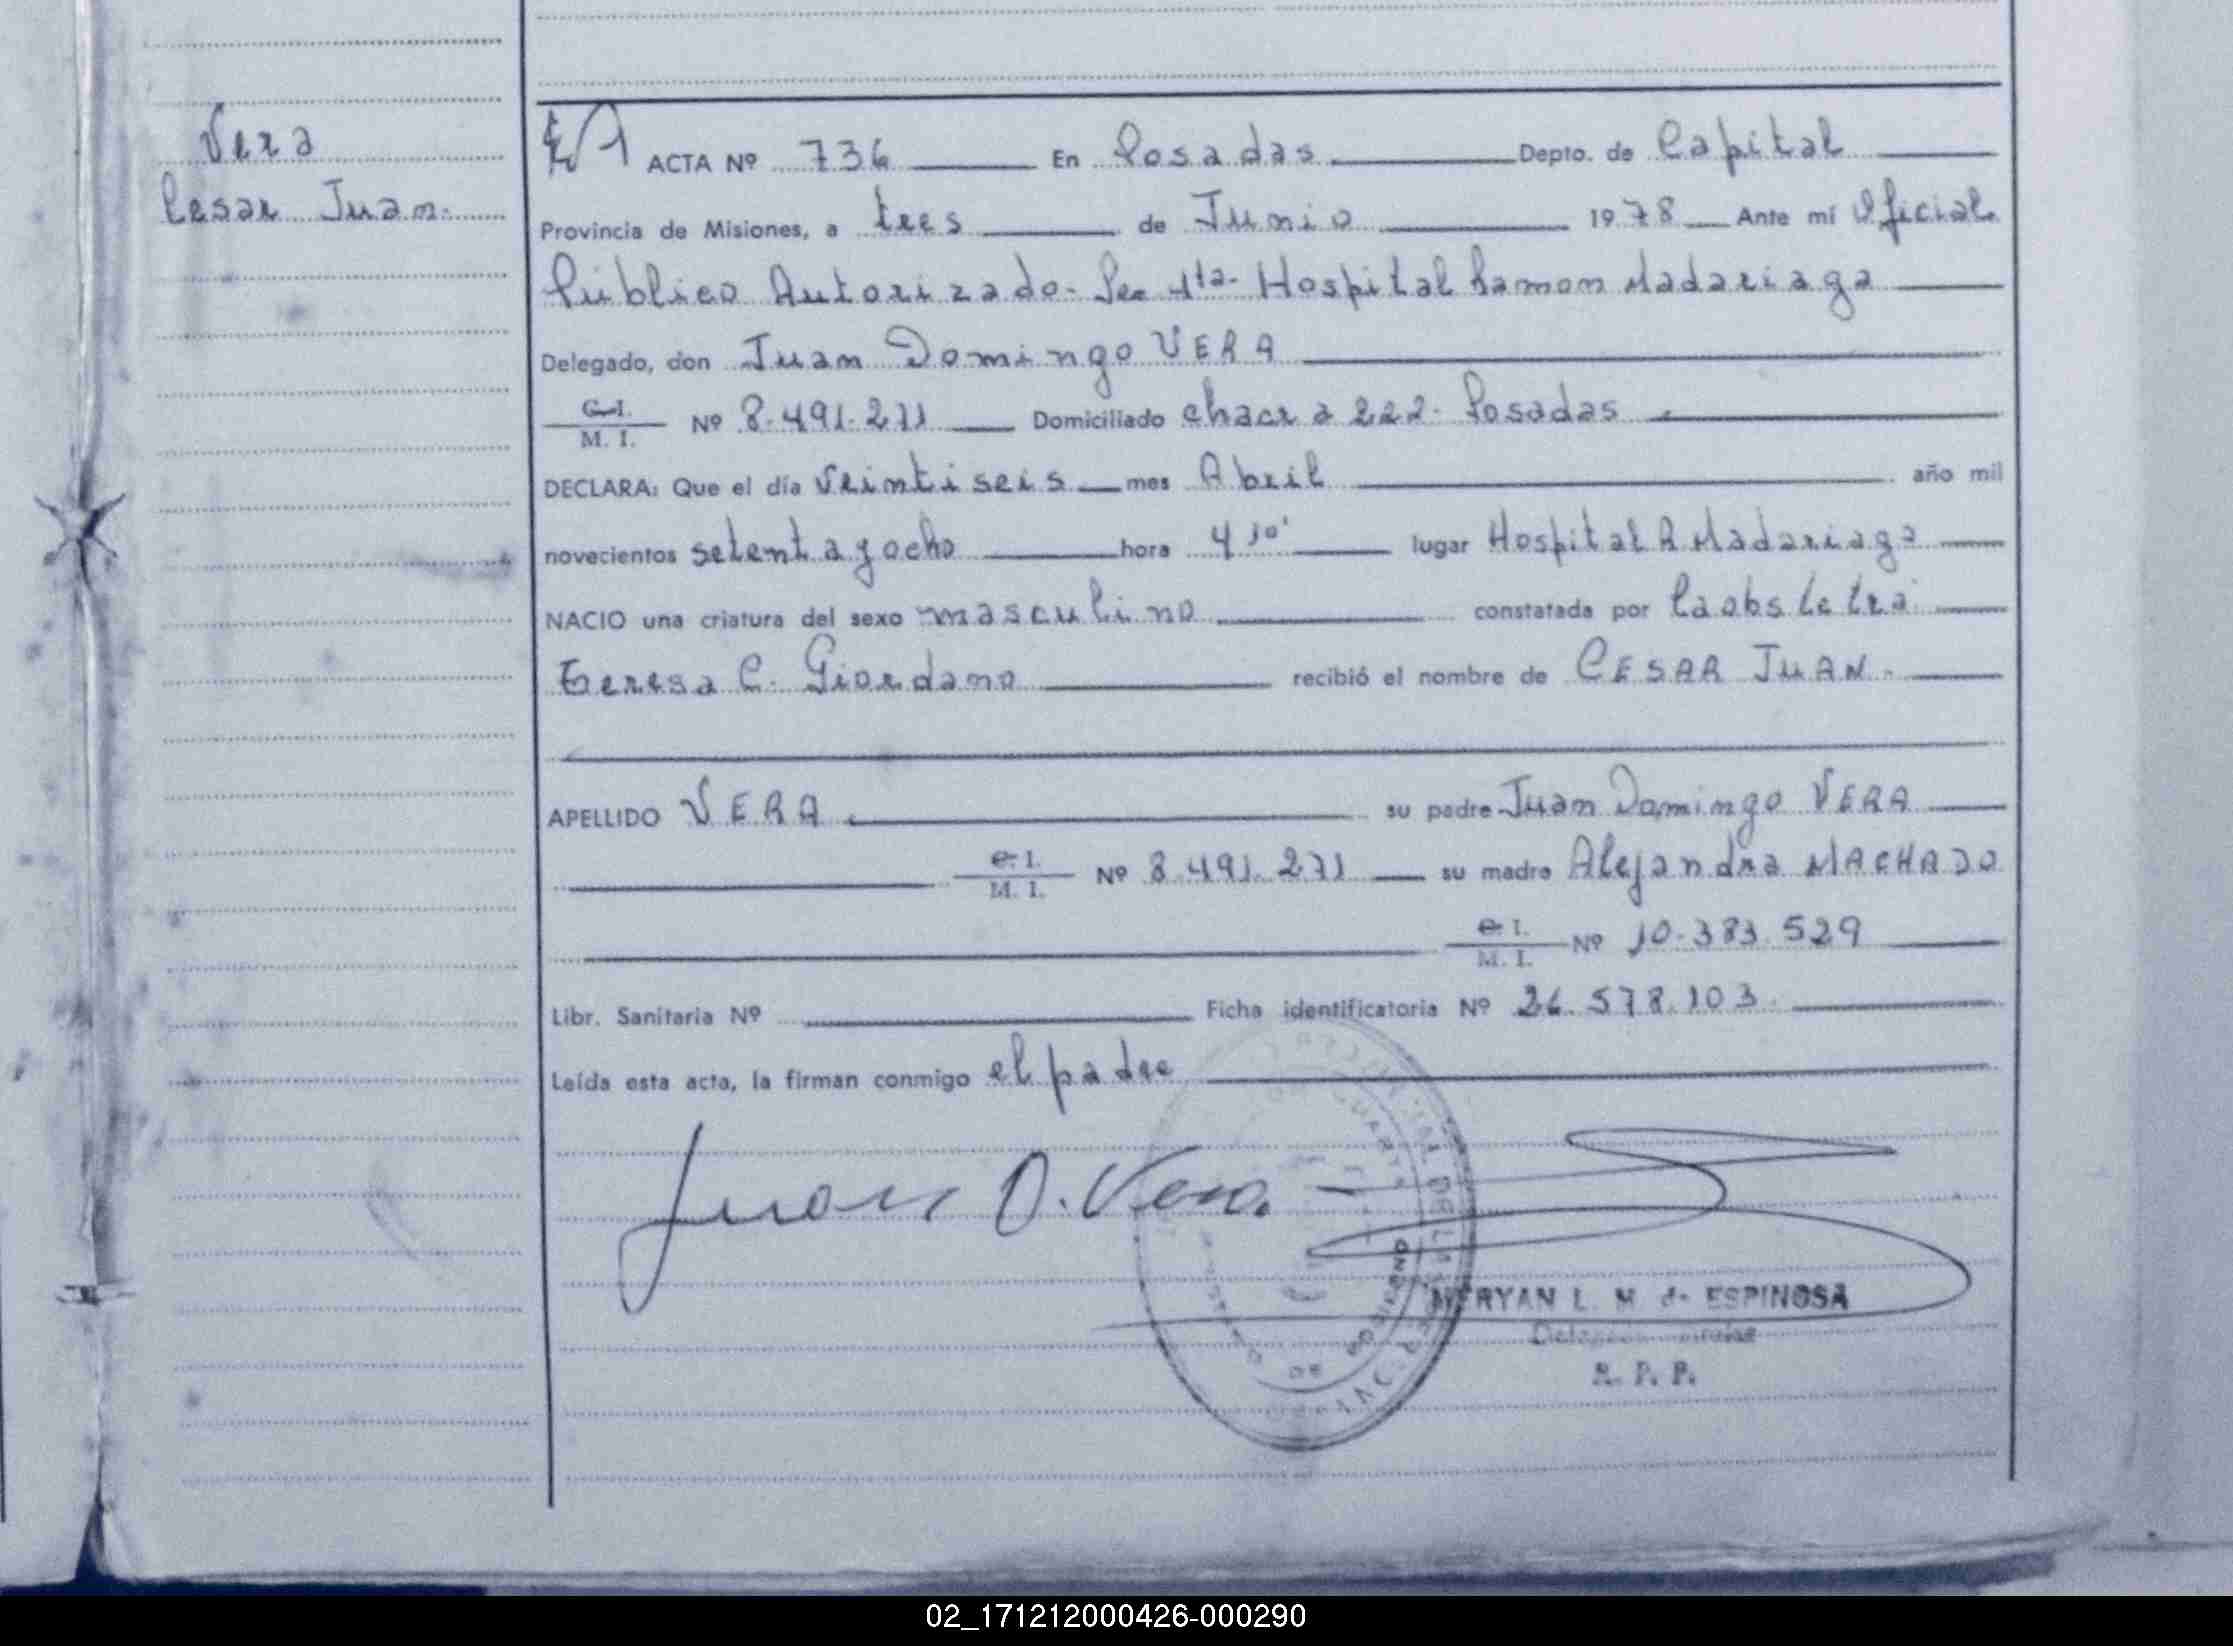 Vera
Cesar Juan.
ACTA Nº 736 En Posadas Depto. de Capital
Provincia de Misiones, a tres de Junio 1978 Ante mí Oficial
Público Autorizado. Sec 4ta. Hospital Ramon Madariaga
Delegado, don Juan Domingo VERA
C. I.
M. I. Nº 8.491.271 Domiciliado chacra 222. Posadas
DECLARA: Que el día veintiseis mes Abril año mil
novecientos setenta y ocho hora 4 10' lugar Hospital R Madariaga
NACIO una criatura del sexo masculino constatada por la obstetra
Teresa C. Giordano recibió el nombre de CESAR JUAN.
APELLIDO VERA su padre Juan Domingo VERA
C. I.
M. I. Nº 8.491.271 su madre Alejandra MACHADO
C. I.
M. I. Nº 10.383.529
Libr. Sanitaria Nº Ficha identificatoria Nº 26.578.103.
Leída esta acta, la firman conmigo el padre
Juan D. Vera
MERYAN L. M. de ESPINOSA
R. P. P.
02_171212000426-000290